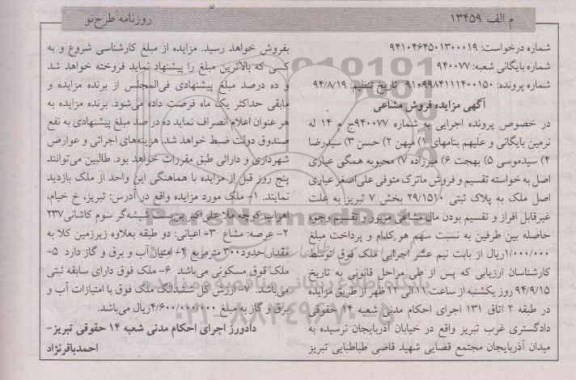 م الف ۱۳۴۵۹
روزنامه طرح‌نو
شماره درخواست: ۹۴۱۰۴۶۴۵۰۱۳۰۰۰۱۹
شماره بایگانی شعبه: ۹۴۰۰۷۷
شماره پرونده: ۹۱۰۹۹۸۴۱۱۱۴۰۰۱۵۰ تاریخ تنظیم: ۹۴/۸/۱۹
آگهی مزایده فروش مشاعی
در خصوص پرونده اجرایی به شماره ۹۴۰۰۷۷ج م ۱۴ له
نرمین بایگانی و علیهم بنامهای ۱) میهن ۲) حسن ۳) سیدرضا
۴) سیدموسی ۵) بهجت ۶) میرزاده ۷) محبوبه همگی عیاری
اصل به خواسته تقسیم و فروش ماترک متوفی علی‌اصغر عیاری
اصل ملک به پلاک ثبتی ۲۹/۱۵۱۰ بخش ۷ تبریز به علت
غیرقابل افراز و تقسیم بودن مال مشاع مزبور و تقسیم وجوه
حاصله بین طرفین به نسبت سهم هرکدام و پرداخت مبلغ
۱/۰۰۰/۰۰۰ریال از بابت نیم عشر اجرایی ملک فوق توسط
کارشناسان ارزیابی که پس از طی مراحل قانونی به تاریخ
۹۴/۹/۱۵ روز یکشنبه از ساعت ۱۱ الی ۱۲ ظهر از طریق مزایده
در طبقه ۲ اتاق ۱۳۱ اجرای احکام مدنی شعبه ۱۴ حقوقی
دادگستری غرب تبریز واقع در خیابان آذربایجان نرسیده به
میدان آذربایجان مجتمع قضایی شهید قاضی طباطبایی تبریز
بفروش خواهد رسید. مزایده از مبلغ کارشناسی شروع و به
کسی که بالاترین مبلغ را پیشنهاد نماید فروخته خواهد شد
و ده درصد مبلغ پیشنهادی فی‌المجلس از برنده مزایده و
مابقی حداکثر یک ماه فرصت داده می‌شود. برنده مزایده به
هر عنوان اعلام انصراف نماید ده درصد مبلغ پیشنهادی به نفع
صندوق دولت ضبط خواهد شد. هزینه‌های اجرائی و عوارض
شهرداری و دارائی طبق مقررات خواهد بود. طالبین می‌توانند
پنج روز قبل از مزایده با هماهنگی این واحد از ملک بازدید
نمایند. ۱- ملک مورد مزایده واقع در آدرس: تبریز، خ خیام،
کوچه ملا علی‌اکبر، شیشه‌گر سوم کاشانی ۲۳۷
۲- عرصه: مشاع ۳- اعیانی: دو طبقه بعلاوه زیرزمین کلا به
مقدار حدود ۲۰۰ مترمربع ۴- امتیاز آب و برق و گاز دارد ۵-
ملک فوق مسکونی می‌باشد ۶- ملک فوق دارای سابقه ثبتی
می‌باشد ۷- ارزش کل ششدانگ ملک فوق با امتیازات آب و
برق و گاز به مبلغ ۴/۶۰۰/۰۰۰/۰۰۰ریال می‌باشد.
دادورز اجرای احکام مدنی شعبه ۱۴ حقوقی تبریز-
احمد باقرنژاد